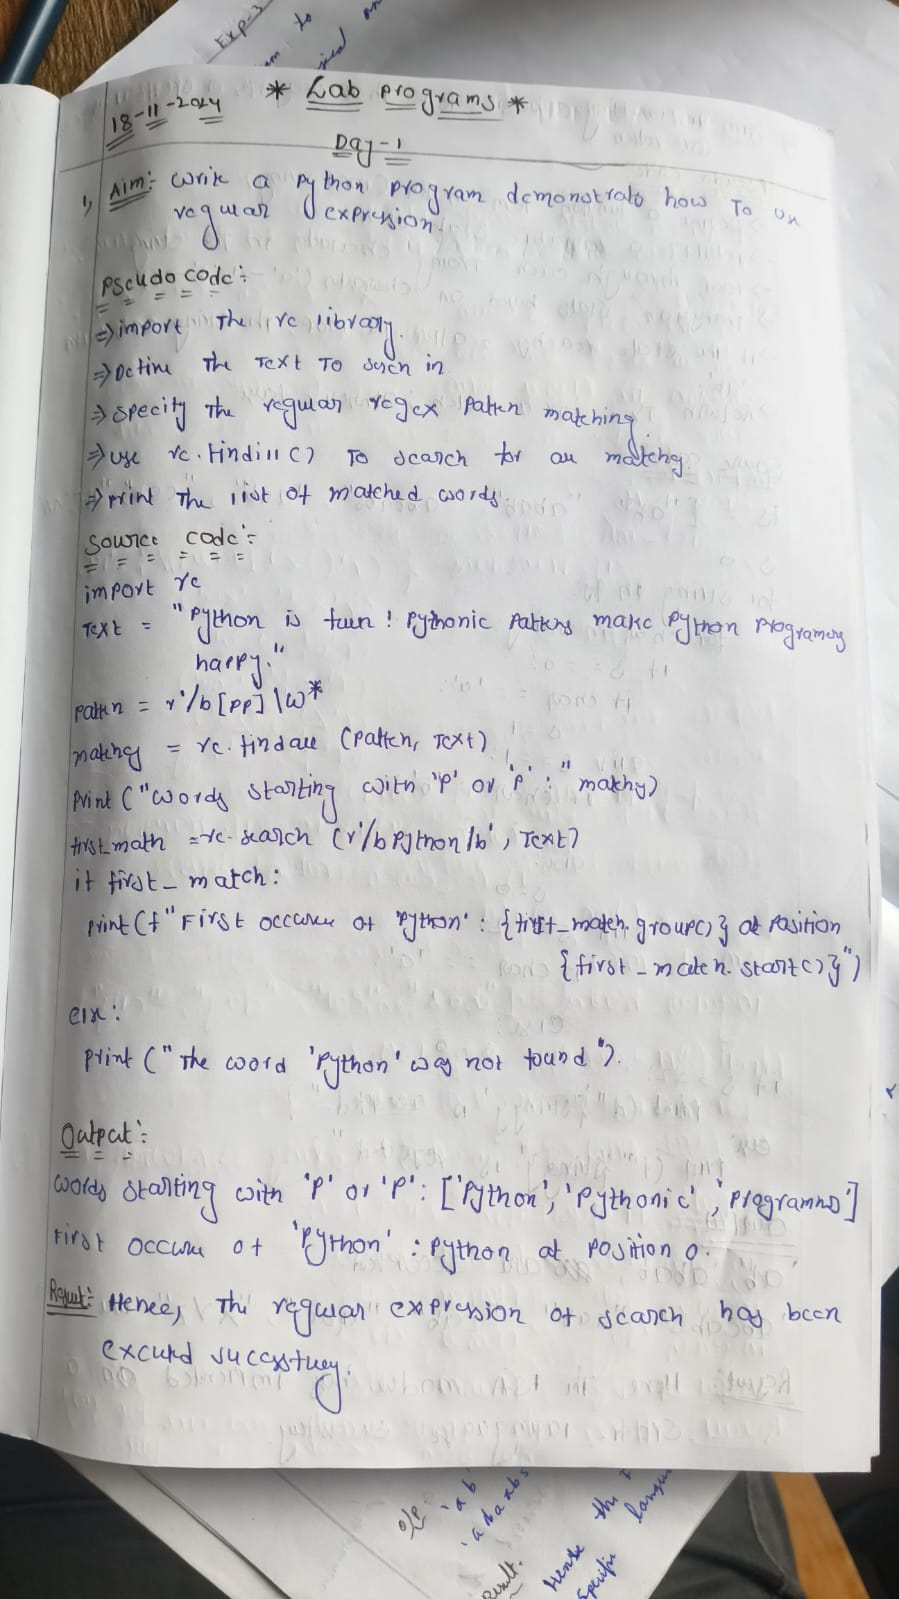 Exp-3
18-11-2024 * Lab programs *
Day-1
1, Aim:- write a python program demonstrate how To use
reguar expression.
Pseudo code:-
⇒ import The re library.
⇒ Define The Text To serch in
⇒ specify The reguar regex Patten matching.
⇒ use re.findall() To search for all matchg
⇒ print The list of matched words.
Source code:-
import re
Text = "Python is fun! Pythonic Patters make Python Programers
happy."
patten = r'/b[pp]\w*
matchng = re.findall (patten, Text)
print ("words starting with 'P' or 'P': " matchy)
first_math = re.search (r'/bPython/b', Text)
if first_match:
print (f"First occurence of 'Python': {first_match.group()} at Position
{first_match.start()}")
else:
print ("The word 'Python' was not found").
Output:-
words starting with 'P' or 'P': ['Python', 'Pythonic', 'Programns']
First occure of 'Python' : Python at position 0.
Result:- Hence, The reguar expression of search has been
excuted succesfuey.
o/p.
'ab'
'abaabs
Result.
Hense the
specific langu